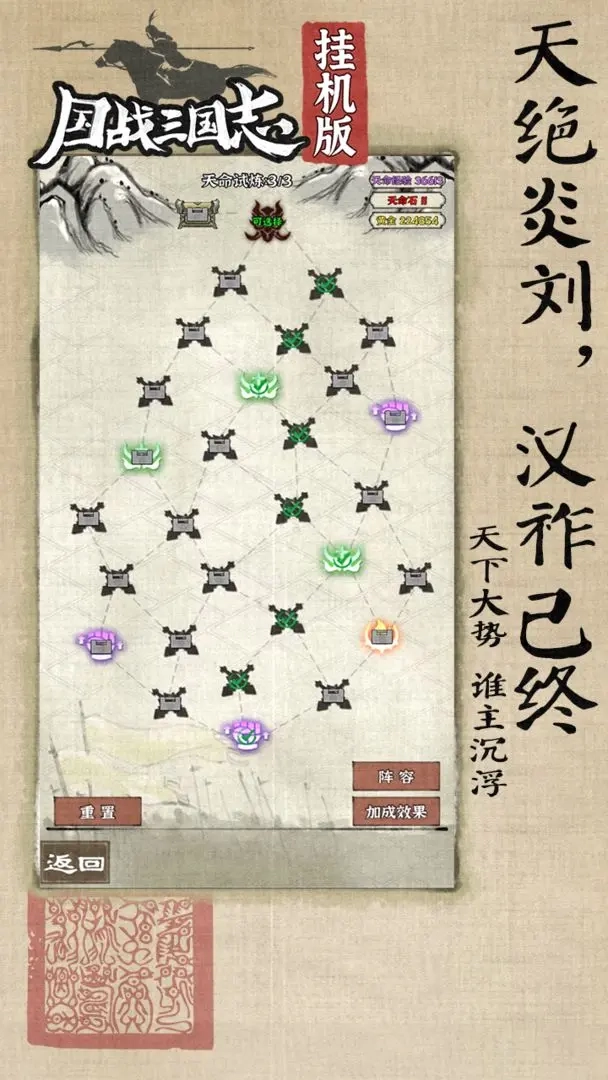 国战三国志
挂机版
天绝炎刘，
汉祚已终
天下大势
谁主沉浮
天命试炼:3/3
天命石 11
黄金 224854
可选择
阵容
重置
加成效果
返回